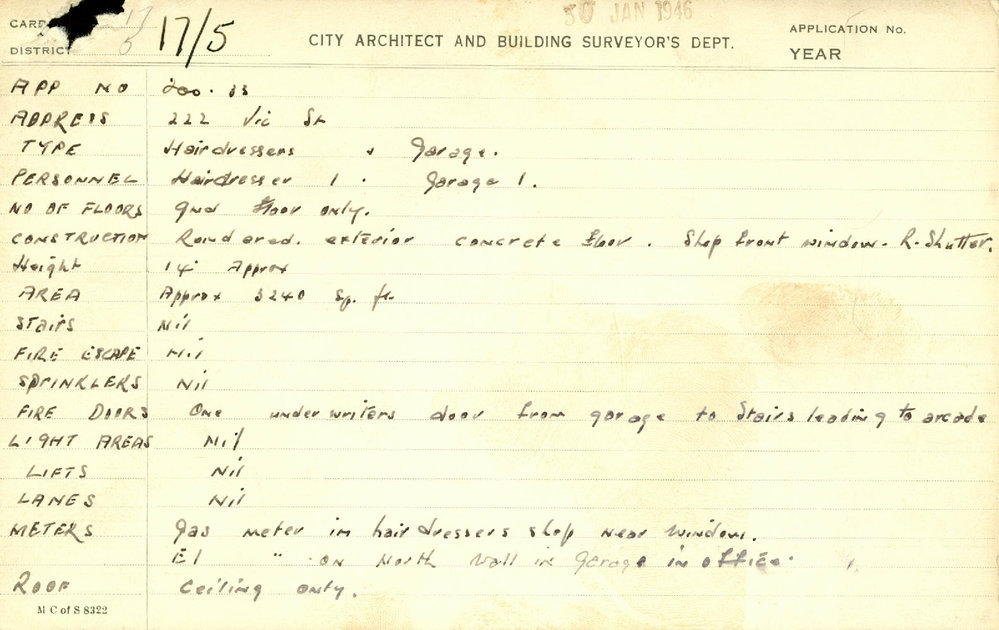 30 JAN 1946
CARD
DISTRICT 17/5
CITY ARCHITECT AND BUILDING SURVEYOR'S DEPT.
APPLICATION No.
YEAR
APP NO 200.33
ADDRESS 222 Vic St
TYPE Hairdressers + Garage.
PERSONNEL Hairdresser 1. Garage 1.
NO OF FLOORS Gnd Floor only.
CONSTRUCTION exterior concrete floor. Shop front window - R. Shutter.
Height 14' Approx
AREA Approx 3240 Sq. ft.
Stairs Nil
FIRE ESCAPE Nil
SPRINKLERS Nil
FIRE DOORS One underwriters door from garage to Stairs leading to arcade
LIGHT AREAS Nil
LIFTS Nil
LANES Nil
METERS Gas meter in hairdressers shop near window.
El " on North Wall in Garage in office.
ROOF Ceiling only.
M C of S 8322